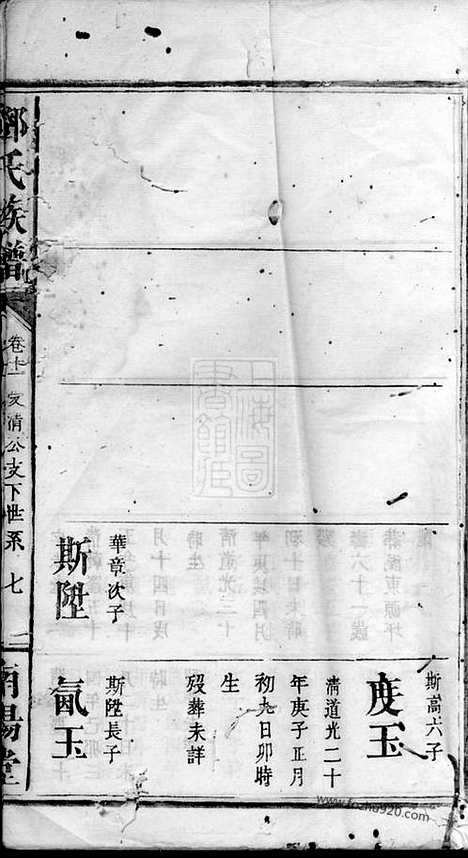 華章次子
斯陞
斯嵩六子
度玉
清道光二十
年庚子正月
初九日卯時
生
歿葬未詳
斯陞長子
氤玉
鄧氏族譜
卷十一
友清公支下世系
七
南陽堂
上海圖
書館藏
www.fozhu920.com